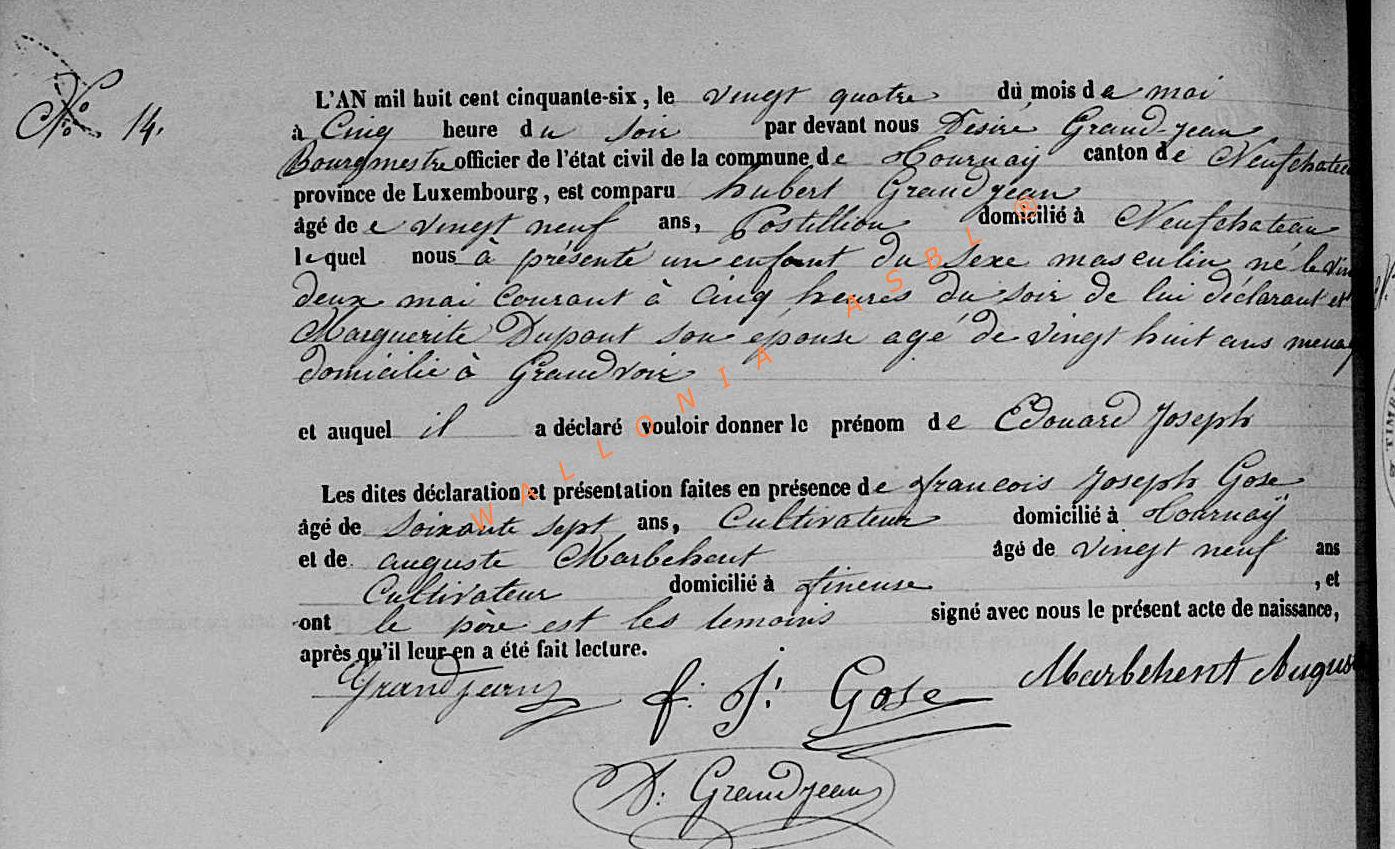 No 14.
L'AN mil huit cent cinquante-six, le vingt quatre du mois de mai
à Cinq heure du soir par devant nous Désiré Grand-jean
Bourgmestre officier de l'état civil de la commune de Tournaÿ canton de Neufchateau
province de Luxembourg, est comparu hubert Grandjean
âgé de e vingt neuf ans, Postillion domicilié à Neufchateau
lequel nous à présenté un enfant du sexe masculin né le vin
deux mai courant à cinq heures du soir de lui déclarant et
Marguerite Dupont son épouse agé de vingt huit ans menag
domicilié à Grandvoir
et auquel il a déclaré vouloir donner le prénom de Edouard Joseph
Les dites déclaration et présentation faites en présence de francois Joseph Gose
âgé de soixante sept ans, Cultivateur domicilié à Tournaÿ
et de auguste Marbehent âgé de vingt neuf ans
Cultivateur domicilié à fineuse , et
ont le père est les temoins signé avec nous le présent acte de naissance,
après qu'il leur en a été fait lecture.
Grandjean f. J. Gose Marbehent Augus
D. Grandjean
WALLONIA ASBL ®
TIMB